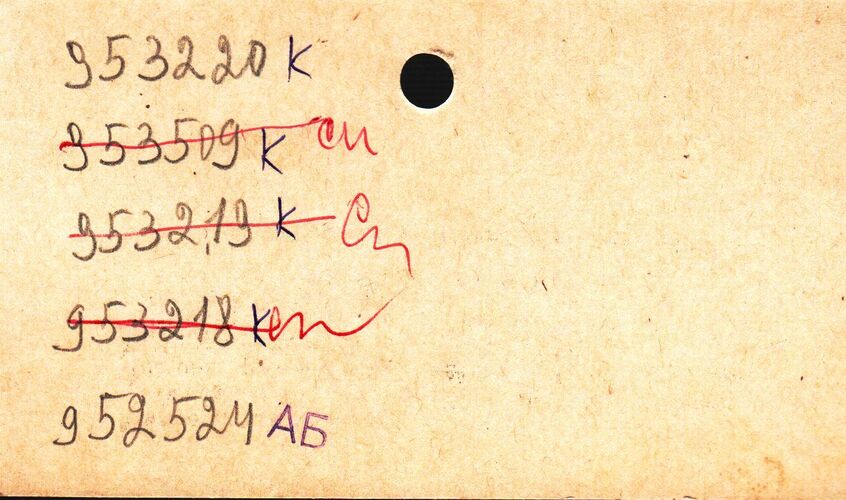 953220 К
953509 К сп
953219 К Сп
953218 К сп
952524 АБ